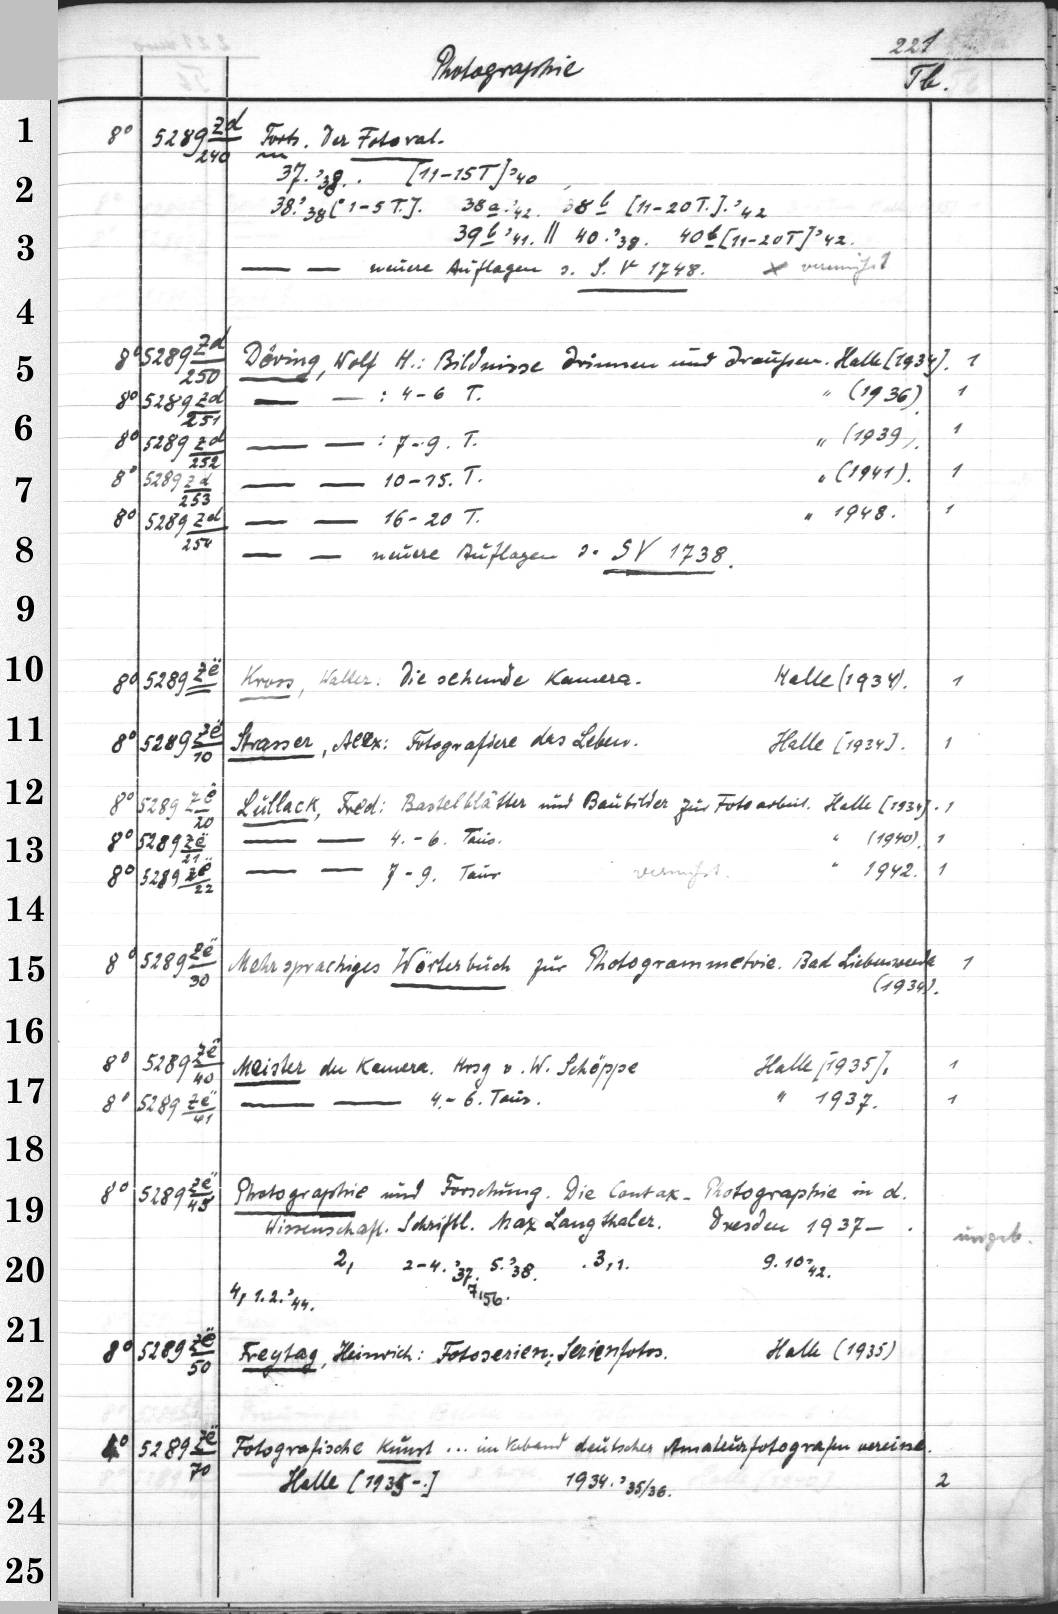 221
Photographie
Tb.
1
8° 5289 Zd/240 Forts. Der Fotorat.
37.'38. . [11-15T]'40
2
38.'38[1-5 T.]. 38a.'42. 38b [11-20T.].'42
3
39b'41. || 40.'38. 40b[11-20T]'42.
— — neuere Auflagen s. S. V 1748. x vermißt
4
8° 5289 Zd/250 Döring, Wolf H.: Bildnisse drinnen und draußen. Halle [1934]. 1
5
8° 5289 Zd/251 — — : 4-6 T. " (1936) 1
6
8° 5289 Zd/252 — — : 7-9. T. " (1939). 1
7
8° 5289 Zd/253 — — 10-15. T. " (1941). 1
8° 5289 Zd/254 — — 16-20 T. " 1948. 1
8
— — neuere Auflagen s. SV 1738.
9
10
8° 5289 Zë Kross, Walter: Die sehende Kamera. Halle (1934). 1
11
8° 5289 Zë/10 Strasser, Alex: Fotografiere das Leben. Halle [1934]. 1
12
8° 5289 Zë/20 Lullack, Fred: Bastelblätter und Baubilder zur Fotoarbeit. Halle [1934]. 1
13
8° 5289 Zë/21 — — 4.-6. Taus. " (1940). 1
8° 5289 Zë/22 — — 7-9. Taus vermißt. " 1942. 1
14
15
8° 5289 Zë/30 Mehrsprachiges Wörterbuch zur Photogrammetrie. Bad Liebenwerda 1
(1934).
16
8° 5289 Zë/40 Meister der Kamera. Hrsg v. W. Schöppe Halle [1935]. 1
17
8° 5289 Zë/41 — — 4.-6. Taus. " 1937. 1
18
8° 5289 Zë/45 Photographie und Forschung. Die Contax-Photographie in d.
19
Wissenschaft. Schriftl. Max Langthaler. Dresden 1937— .
ungeb.
20
2, 2-4.'37. 5.'38. .3,1. 9.10'42.
4,1.2.'44. 7,'56.
21
8° 5289 Zë/50 Freytag, Heinrich: Fotoserien; Serienfotos. Halle (1935)
22
23
4° 5289 Zë/70 Fotografische Kunst ... im Verband deutscher Amateurfotografenvereine.
Halle [1935-.] 1934.'35/36. 2
24
25